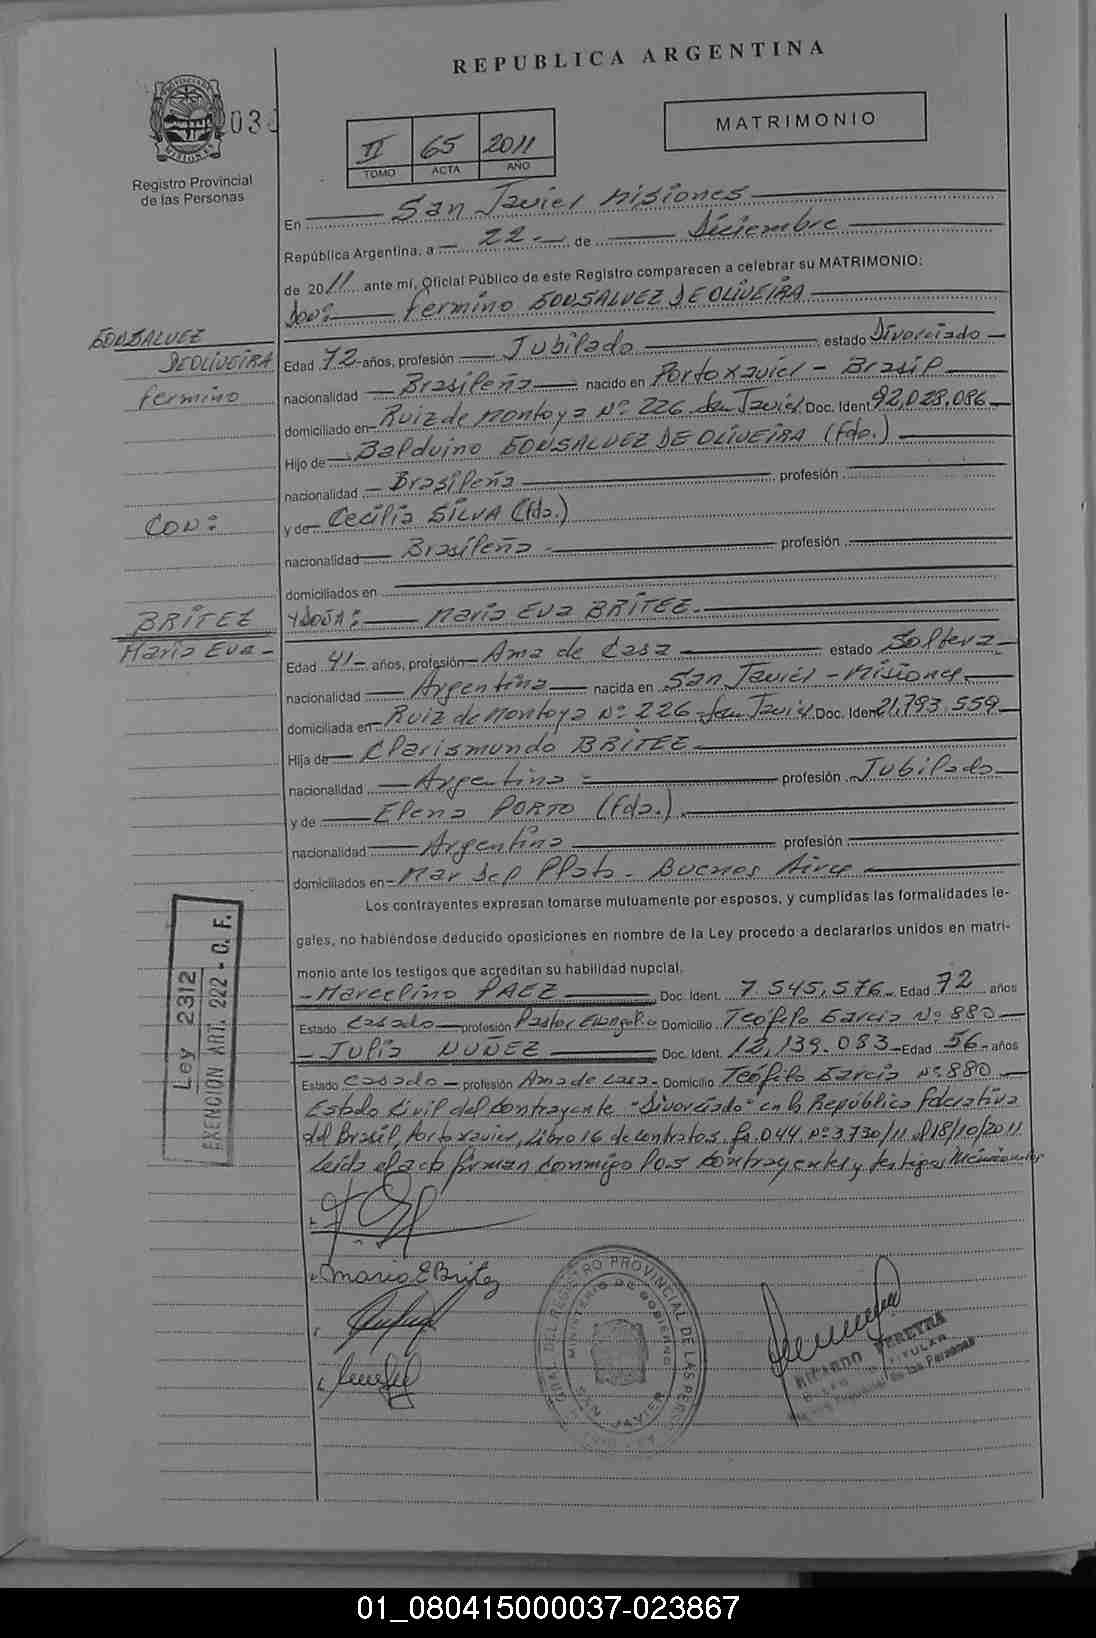 REPUBLICA ARGENTINA
Registro Provincial
de las Personas
II 65 2011
TOMO ACTA AÑO
MATRIMONIO
En San Javier Misiones
República Argentina, a 22 de Diciembre
de 2011 ante mí, Oficial Público de este Registro comparecen a celebrar su MATRIMONIO:
Don: Fermino GONSALVEZ DE OLIVEIRA
GONSALVEZ
DE OLIVEIRA
Fermino
Edad 72 años, profesión Jubilado estado Divorciado
nacionalidad Brasileña nacido en Porto Xavier - Brasil
domiciliado en Ruiz de Montoya Nº 226 San Javier Doc. Ident. 92.028.086
Hijo de Balduino GONSALVEZ DE OLIVEIRA (fdo.)
nacionalidad Brasileña profesión
CON:
y de Cecilia SILVA (fda.)
nacionalidad Brasileña profesión
domiciliados en
BRITEZ
Maria Eva
Y DOÑA: Maria Eva BRITEZ
Edad 41 años, profesión Ama de Casa estado Soltera
nacionalidad Argentina nacida en San Javier - Misiones
domiciliada en Ruiz de Montoya Nº 226 San Javier Doc. Ident. 21.793.559
Hija de Clarismundo BRITEZ
nacionalidad Argentina profesión Jubilado
y de Elena PORTO (fda.)
nacionalidad Argentina profesión
domiciliados en Mar Del Plata - Buenos Aires
Los contrayentes expresan tomarse mutuamente por esposos, y cumplidas las formalidades le-
gales, no habiéndose deducido oposiciones en nombre de la Ley procedo a declararlos unidos en matri-
monio ante los testigos que acreditan su habilidad nupcial.
Marcelino PAEZ Doc. Ident. 7.545.576 Edad 72 años
Estado Casado profesión Pastor Evangelico Domicilio Teófilo Garcia Nº 880
Julia NUÑEZ Doc. Ident. 12.139.083 Edad 56 años
Estado Casado profesión Ama de Casa Domicilio Teófilo Garcia Nº 880
Estado Civil del contrayente "Divorciado" en la República Federativa
del Brasil, Porto Xavier, Libro 16 de contratos, fs. 044 Nº 3.730/11 el 18/10/2011
Leida el acta firman conmigo los contrayentes y testigos
Ley 2312
EXENCION ART. 222 - C. F.
Maria E Britez
REGISTRO PROVINCIAL DE LAS PERS
MINISTERIO DE GOBIERNO
SAN JAVIER
RICARDO PEREYRA
TITULAR
01_080415000037-023867